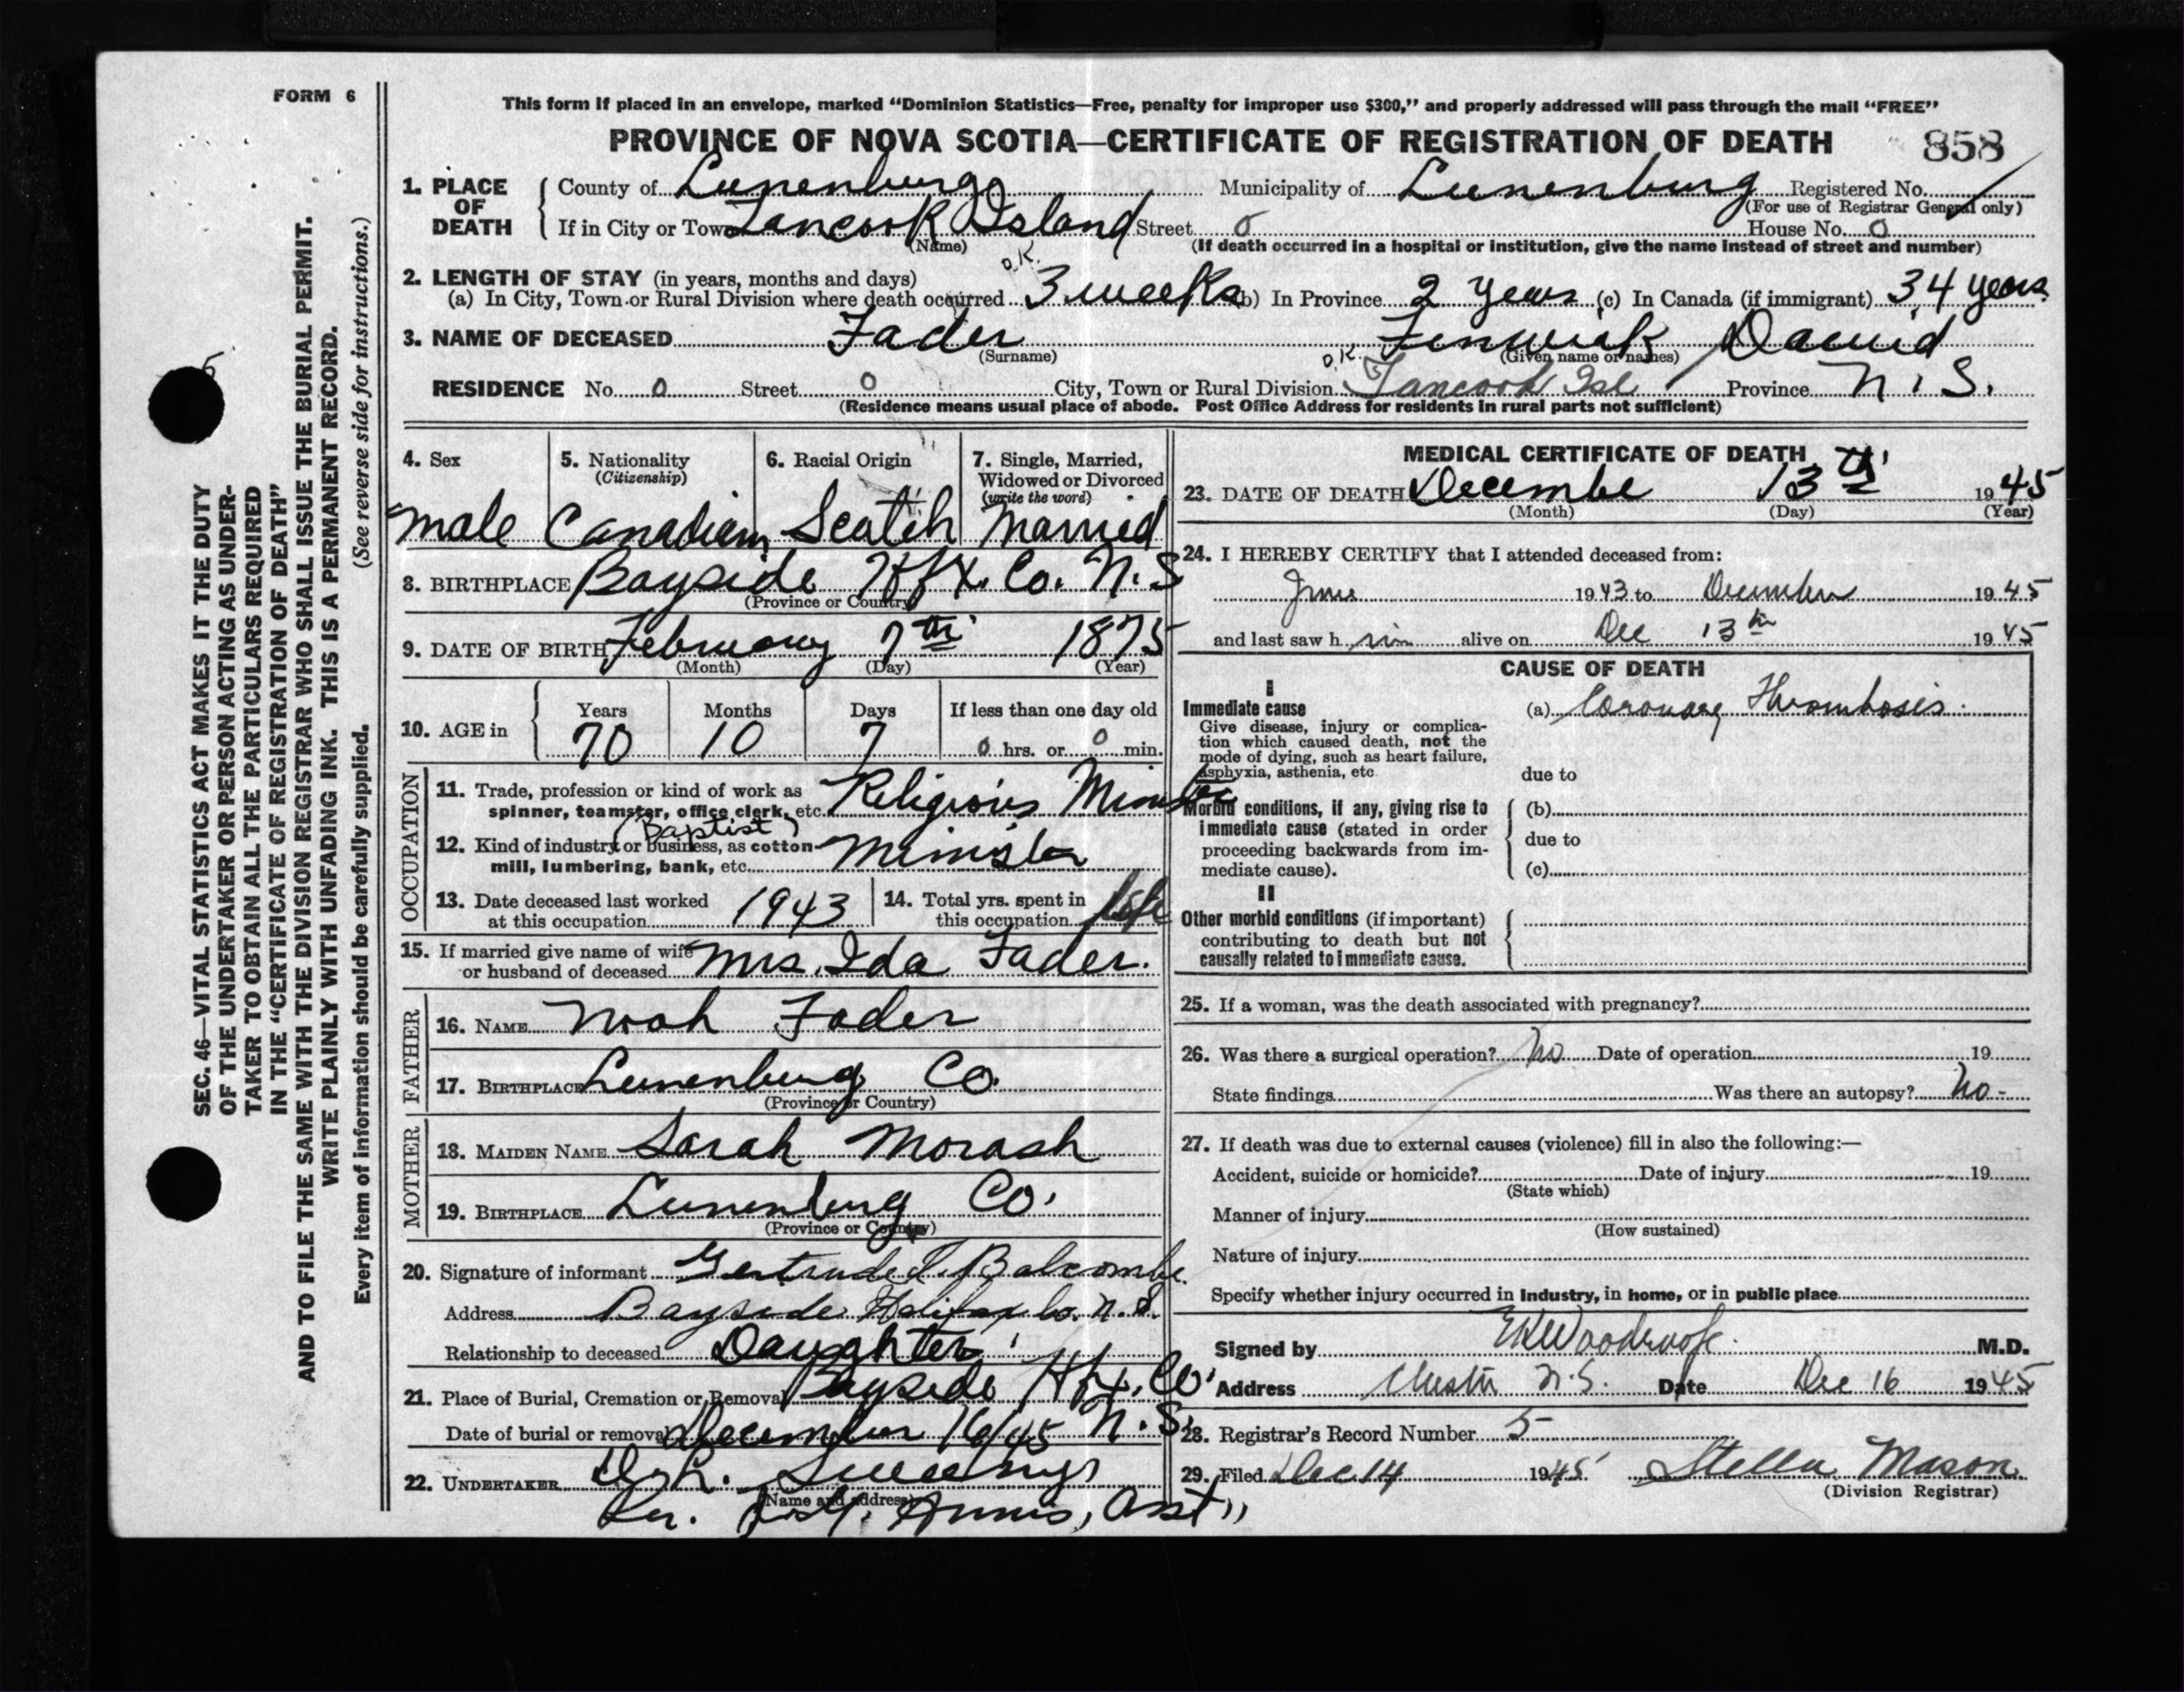 FORM 6
This form if placed in an envelope, marked "Dominion Statistics—Free, penalty for improper use $300," and properly addressed will pass through the mail "FREE"
PROVINCE OF NOVA SCOTIA—CERTIFICATE OF REGISTRATION OF DEATH 858
1. PLACE OF DEATH County of Lunenburg Municipality of Lunenburg Registered No.
(For use of Registrar General only)
If in City or Town Tancook Island Street 0 House No. 0
(Name) (If death occurred in a hospital or institution, give the name instead of street and number)
2. LENGTH OF STAY (in years, months and days) O.K.
(a) In City, Town or Rural Division where death occurred 3 weeks (b) In Province 2 years (c) In Canada (if immigrant) 34 years
3. NAME OF DECEASED Fader Fenwick David
(Surname) (Given name or names)
O.K.
RESIDENCE No. 0 Street 0 City, Town or Rural Division Tancook Isl Province N.S.
(Residence means usual place of abode. Post Office Address for residents in rural parts not sufficient)
4. Sex 5. Nationality (Citizenship) 6. Racial Origin 7. Single, Married, Widowed or Divorced (write the word)
male Canadian Scotch Married
8. BIRTHPLACE Bayside Hfx. Co. N.S
(Province or Country)
9. DATE OF BIRTH February 7th 1875
(Month) (Day) (Year)
10. AGE in Years Months Days If less than one day old
70 10 7 0 hrs. or 0 min.
OCCUPATION
11. Trade, profession or kind of work as spinner, teamster, office clerk, etc. Religious Minister
12. Kind of industry or business, as cotton mill, lumbering, bank, etc. (Baptist) Minister
13. Date deceased last worked at this occupation 1943 14. Total yrs. spent in this occupation life
15. If married give name of wife or husband of deceased Mrs. Ida Fader.
FATHER
16. NAME Noah Fader
17. BIRTHPLACE Lunenburg Co.
(Province or Country)
MOTHER
18. MAIDEN NAME Sarah Morash
19. BIRTHPLACE Lunenburg Co.
(Province or Country)
20. Signature of informant Gertrude J. Balcombe.
Address Bayside Halifax Co. N.S.
Relationship to deceased Daughter
21. Place of Burial, Cremation or Removal Bayside Hfx. Co.
Date of burial or removal December 16/45 N.S.
22. UNDERTAKER
(Name and address)
Asst
MEDICAL CERTIFICATE OF DEATH
23. DATE OF DEATH Decembe 13th 1945
(Month) (Day) (Year)
24. I HEREBY CERTIFY that I attended deceased from:
June 1943 to December 1945
and last saw h im alive on Dec 13th 1945
CAUSE OF DEATH
I
Immediate cause
Give disease, injury or complication which caused death, not the mode of dying, such as heart failure, asphyxia, asthenia, etc.
(a) Coronary Thrombosis.
due to
Morbid conditions, if any, giving rise to immediate cause (stated in order proceeding backwards from immediate cause).
(b)
due to
(c)
II
Other morbid conditions (if important) contributing to death but not causally related to immediate cause.
25. If a woman, was the death associated with pregnancy?
26. Was there a surgical operation? No Date of operation 19
State findings Was there an autopsy? No -
27. If death was due to external causes (violence) fill in also the following:—
Accident, suicide or homicide? Date of injury 19
(State which)
Manner of injury
(How sustained)
Nature of injury
Specify whether injury occurred in Industry, in home, or in public place
Signed by M.D.
Address Chester N.S. Date Dec 16 1945
28. Registrar's Record Number 5
29. Filed Dec. 14 1945 Stella Mason
(Division Registrar)
SEC. 46—VITAL STATISTICS ACT MAKES IT THE DUTY
OF THE UNDERTAKER OR PERSON ACTING AS UNDER-
TAKER TO OBTAIN ALL THE PARTICULARS REQUIRED
IN THE "CERTIFICATE OF REGISTRATION OF DEATH"
AND TO FILE THE SAME WITH THE DIVISION REGISTRAR WHO SHALL ISSUE THE BURIAL PERMIT.
WRITE PLAINLY WITH UNFADING INK. THIS IS A PERMANENT RECORD.
Every item of information should be carefully supplied. (See reverse side for instructions.)
5